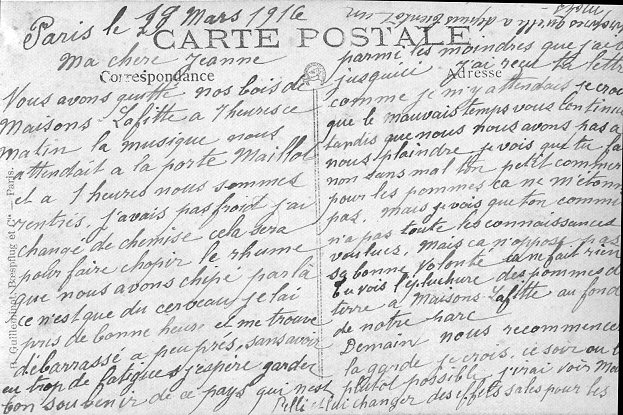 Paris le 29 Mars 1916
CARTE POSTALE
Ma chere Jeanne
Correspondance
Adresse
Vous avons quitté nos bois de
Maisons Lafitte a 7 heures ce
matin la musique nous
attendait a la porte Maillot
et a 1 heures nous sommes
rentrés. j'avais pas froid j'ai
changé de chemise cela sera
pour faire chopir le rhume
que nous avons chipé par la
ce n'est que du cerveau, je l'ai
pris de bonne heure et me trouve
débarrassé a peu près, sans avoir
eu trop de fatigues j'espère garder
bon souvenir de ce pays qui n'est
parmi les moindres que j'ai
jusquici J'ai recu ta lettre
comme je m'y attendais je crois
que le mauvais temps vous continue
tandis que nous nous avons pas a
nous plaindre je vois que tu fais
non sans mal ton petit commerce
pour les pommes ca ne m'étonne
pas, mais je vois que ton commis
n'a pas toute les connaissances
voulues, mais ca n'oppose pas
sa bonne Volonté ca ne fait rien
tu vois l'epluchure des pommes de
terre a Maisons-Lafitte au fond
de notre parc
Demain nous recommencer
la garde je crois, ce soir ou
plutot possible j'irai voir
changer des effets sales pour les
B. Guilleminot, Boespflug et Cie — Paris.